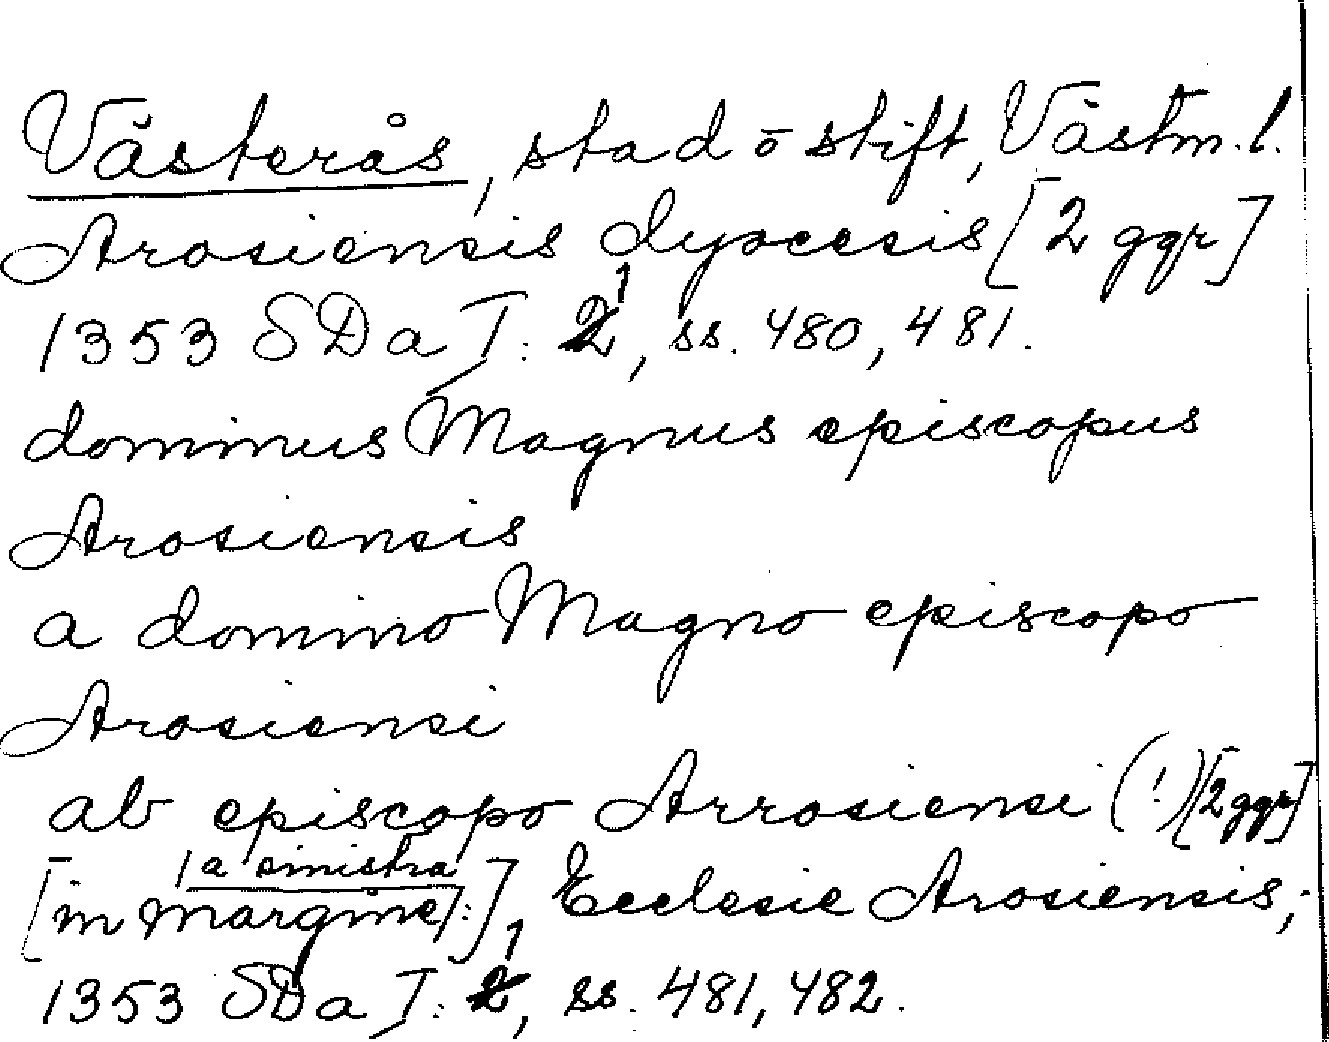 Västerås, stad o stift, Västm. l.
Arosiensis dyocesis [2 ggr]
1353 SDa I: 1, ss. 480, 481.
dominus Magnus episcopus
Arosiensis
a domino Magno episcopo
Arosiensi
ab episcopo Arrosiensi (!) [2 ggr]
[in margine a sinistra:], Ecclesie Arosiensis,
1353 SDa I: 1, ss. 481, 482.